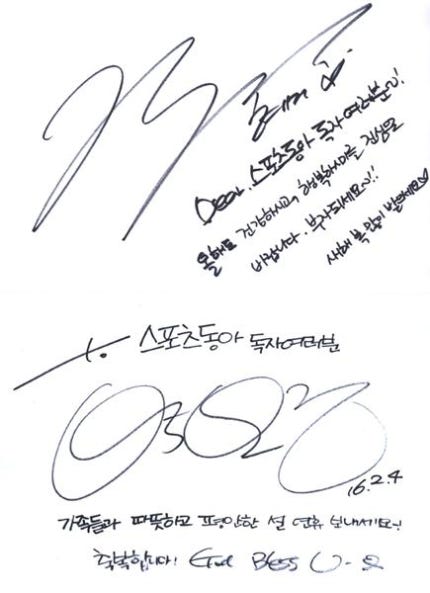 Dear. 스포츠동아 독자 여러분~!
올해도 건강하시고, 행복하시기를 진심으로
바랍니다. 부자되세요~!!
새해 복 많이 받으세요♡
to. 스포츠동아 독자여러분
16.2.4
가족들과 따뜻하고 평안한 설 연휴 보내세요~!
축복합니다! God Bless U~